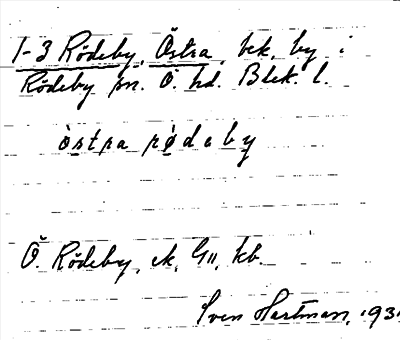 1-3 Rödeby, Östra, bek. by i
Rödeby sn. Ö. hd. Blek. l.
òstra rø̀deby
Ö. Rödeby, ek. G11, kb.
Sven Hartman, 193